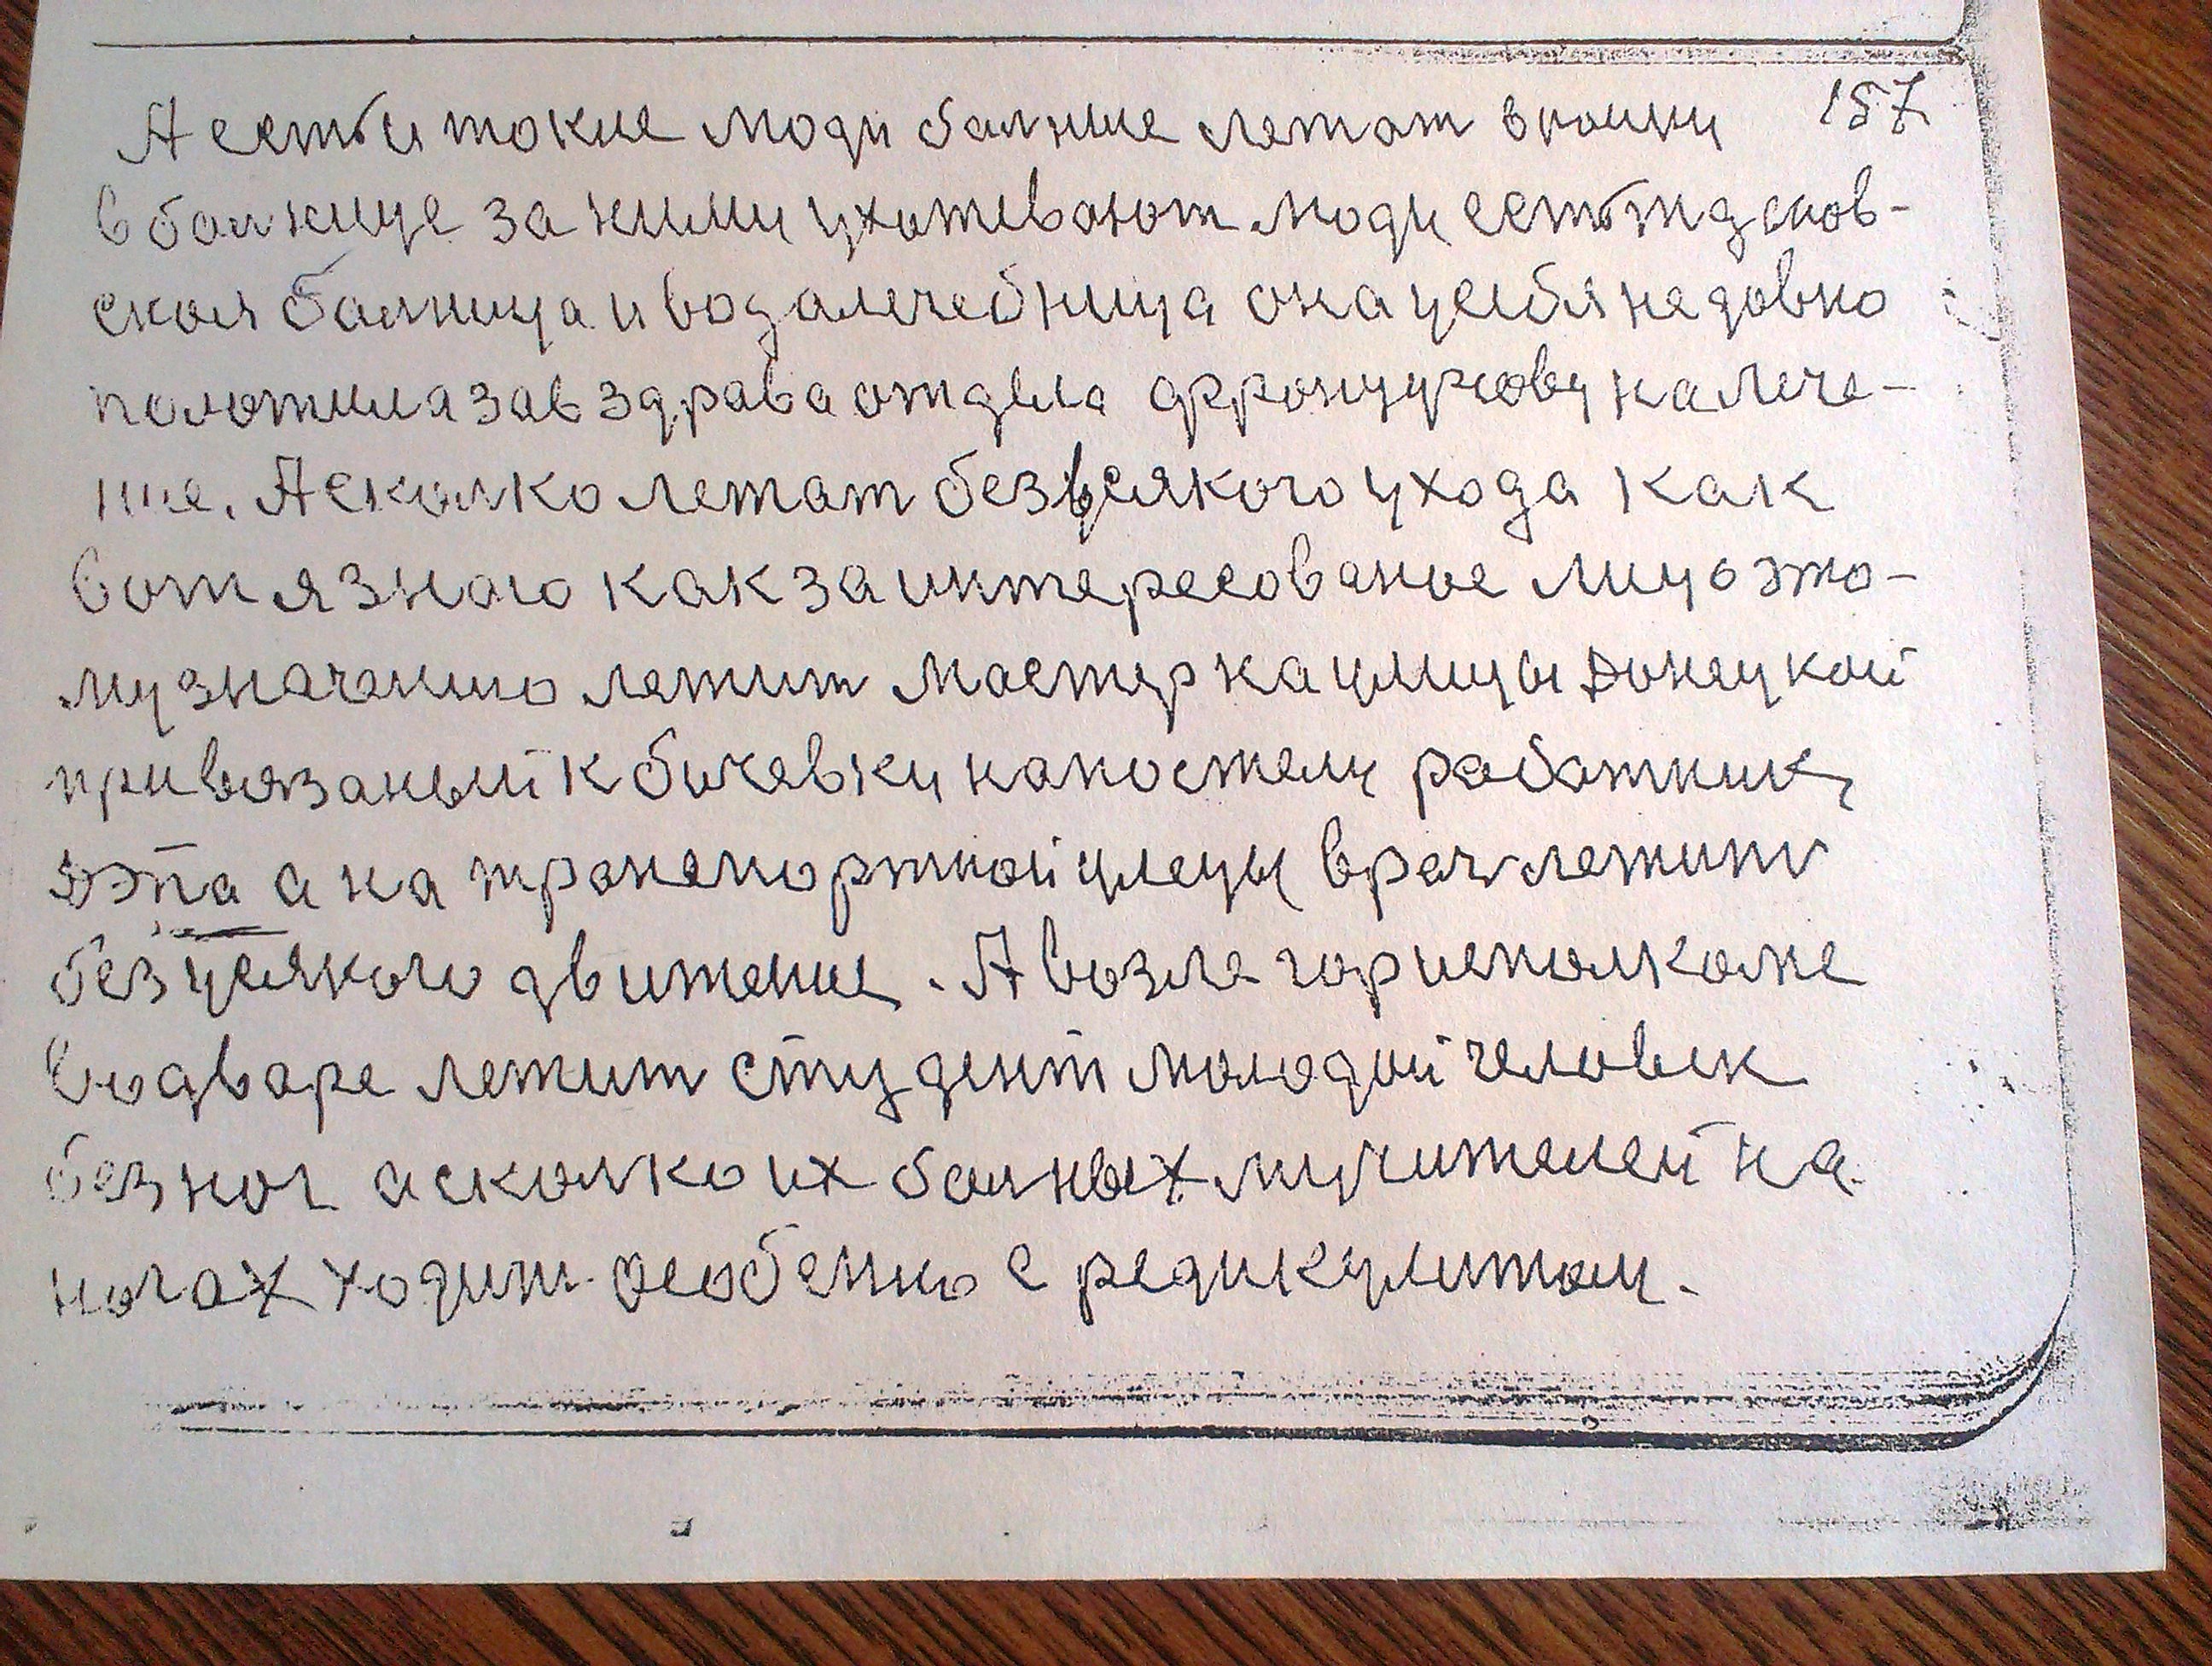 А есть и токие люди балние лежат в 157
в болнице за ними ухаживают люди есть
ская балница и водалечебница она у себя недавно
положила зав здрава отдела на лече-
ние. А сколко лежат без всякого ухода как
вот я знаю как заинтересованое лицо это-
му значению лежит мастер на улицы Донецкой
привязаный к бичевки на постели работник
ДЭПа а на транспортной улецы врач лежит
без усякого движение. А возле горисполкоме
во дваре лежит студент молодой человек
без ног а сколко их болных мучителей на
ногах ходит особенно с редикулитом.